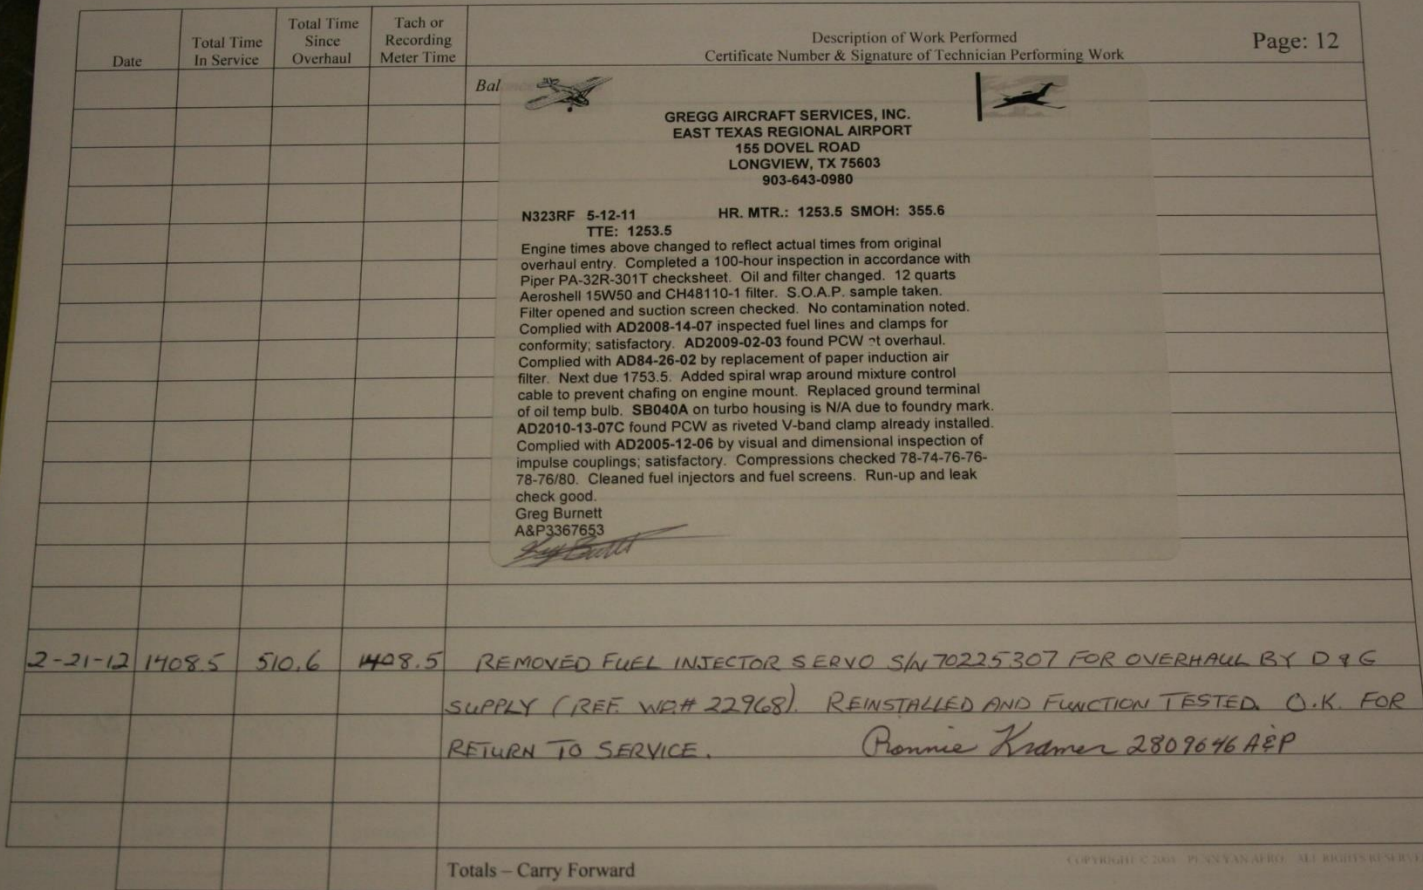 Page: 12
Date
Total Time
In Service
Total Time
Since
Overhaul
Tach or
Recording
Meter Time
Description of Work Performed
Certificate Number & Signature of Technician Performing Work
Bal
GREGG AIRCRAFT SERVICES, INC.
EAST TEXAS REGIONAL AIRPORT
155 DOVEL ROAD
LONGVIEW, TX 75603
903-643-0980
N323RF 5-12-11 HR. MTR.: 1253.5 SMOH: 355.6
TTE: 1253.5
Engine times above changed to reflect actual times from original
overhaul entry. Completed a 100-hour inspection in accordance with
Piper PA-32R-301T checksheet. Oil and filter changed. 12 quarts
Aeroshell 15W50 and CH48110-1 filter. S.O.A.P. sample taken.
Filter opened and suction screen checked. No contamination noted.
Complied with AD2008-14-07 inspected fuel lines and clamps for
conformity; satisfactory. AD2009-02-03 found PCW at overhaul.
Complied with AD84-26-02 by replacement of paper induction air
filter. Next due 1753.5. Added spiral wrap around mixture control
cable to prevent chafing on engine mount. Replaced ground terminal
of oil temp bulb. SB040A on turbo housing is N/A due to foundry mark.
AD2010-13-07C found PCW as riveted V-band clamp already installed.
Complied with AD2005-12-06 by visual and dimensional inspection of
impulse couplings; satisfactory. Compressions checked 78-74-76-76-
78-76/80. Cleaned fuel injectors and fuel screens. Run-up and leak
check good.
Greg Burnett
A&P3367653
2-21-12 1408.5 510.6 1408.5 REMOVED FUEL INJECTOR SERVO S/N 70225307 FOR OVERHAUL BY D & G
SUPPLY (REF. WO.# 22968). REINSTALLED AND FUNCTION TESTED. O.K. FOR
RETURN TO SERVICE. Ronnie Kramer 2809646 A&P
Totals – Carry Forward